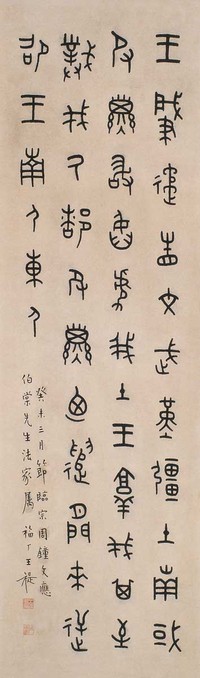 王肇遹眚文武堇彊土南或
𠬝孳敢臽虐我土王敦伐其至
𢿢伐氒都𠬝孳廼遣閒來逆
卲王南尸東尸
癸未三月節臨宗周鐘文應
伯棠先生法家屬 福厂王禔